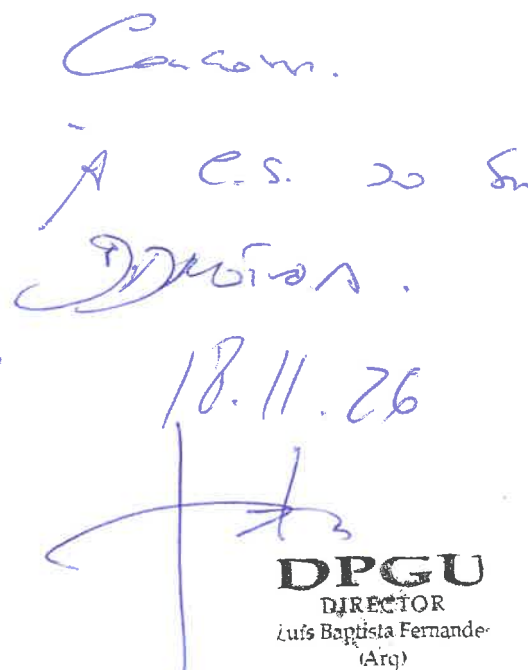 Concordo.
À C.S. do Sr.
18.11.26
DPGU
DIRECTOR
Luís Baptista Fernande
(Arq)